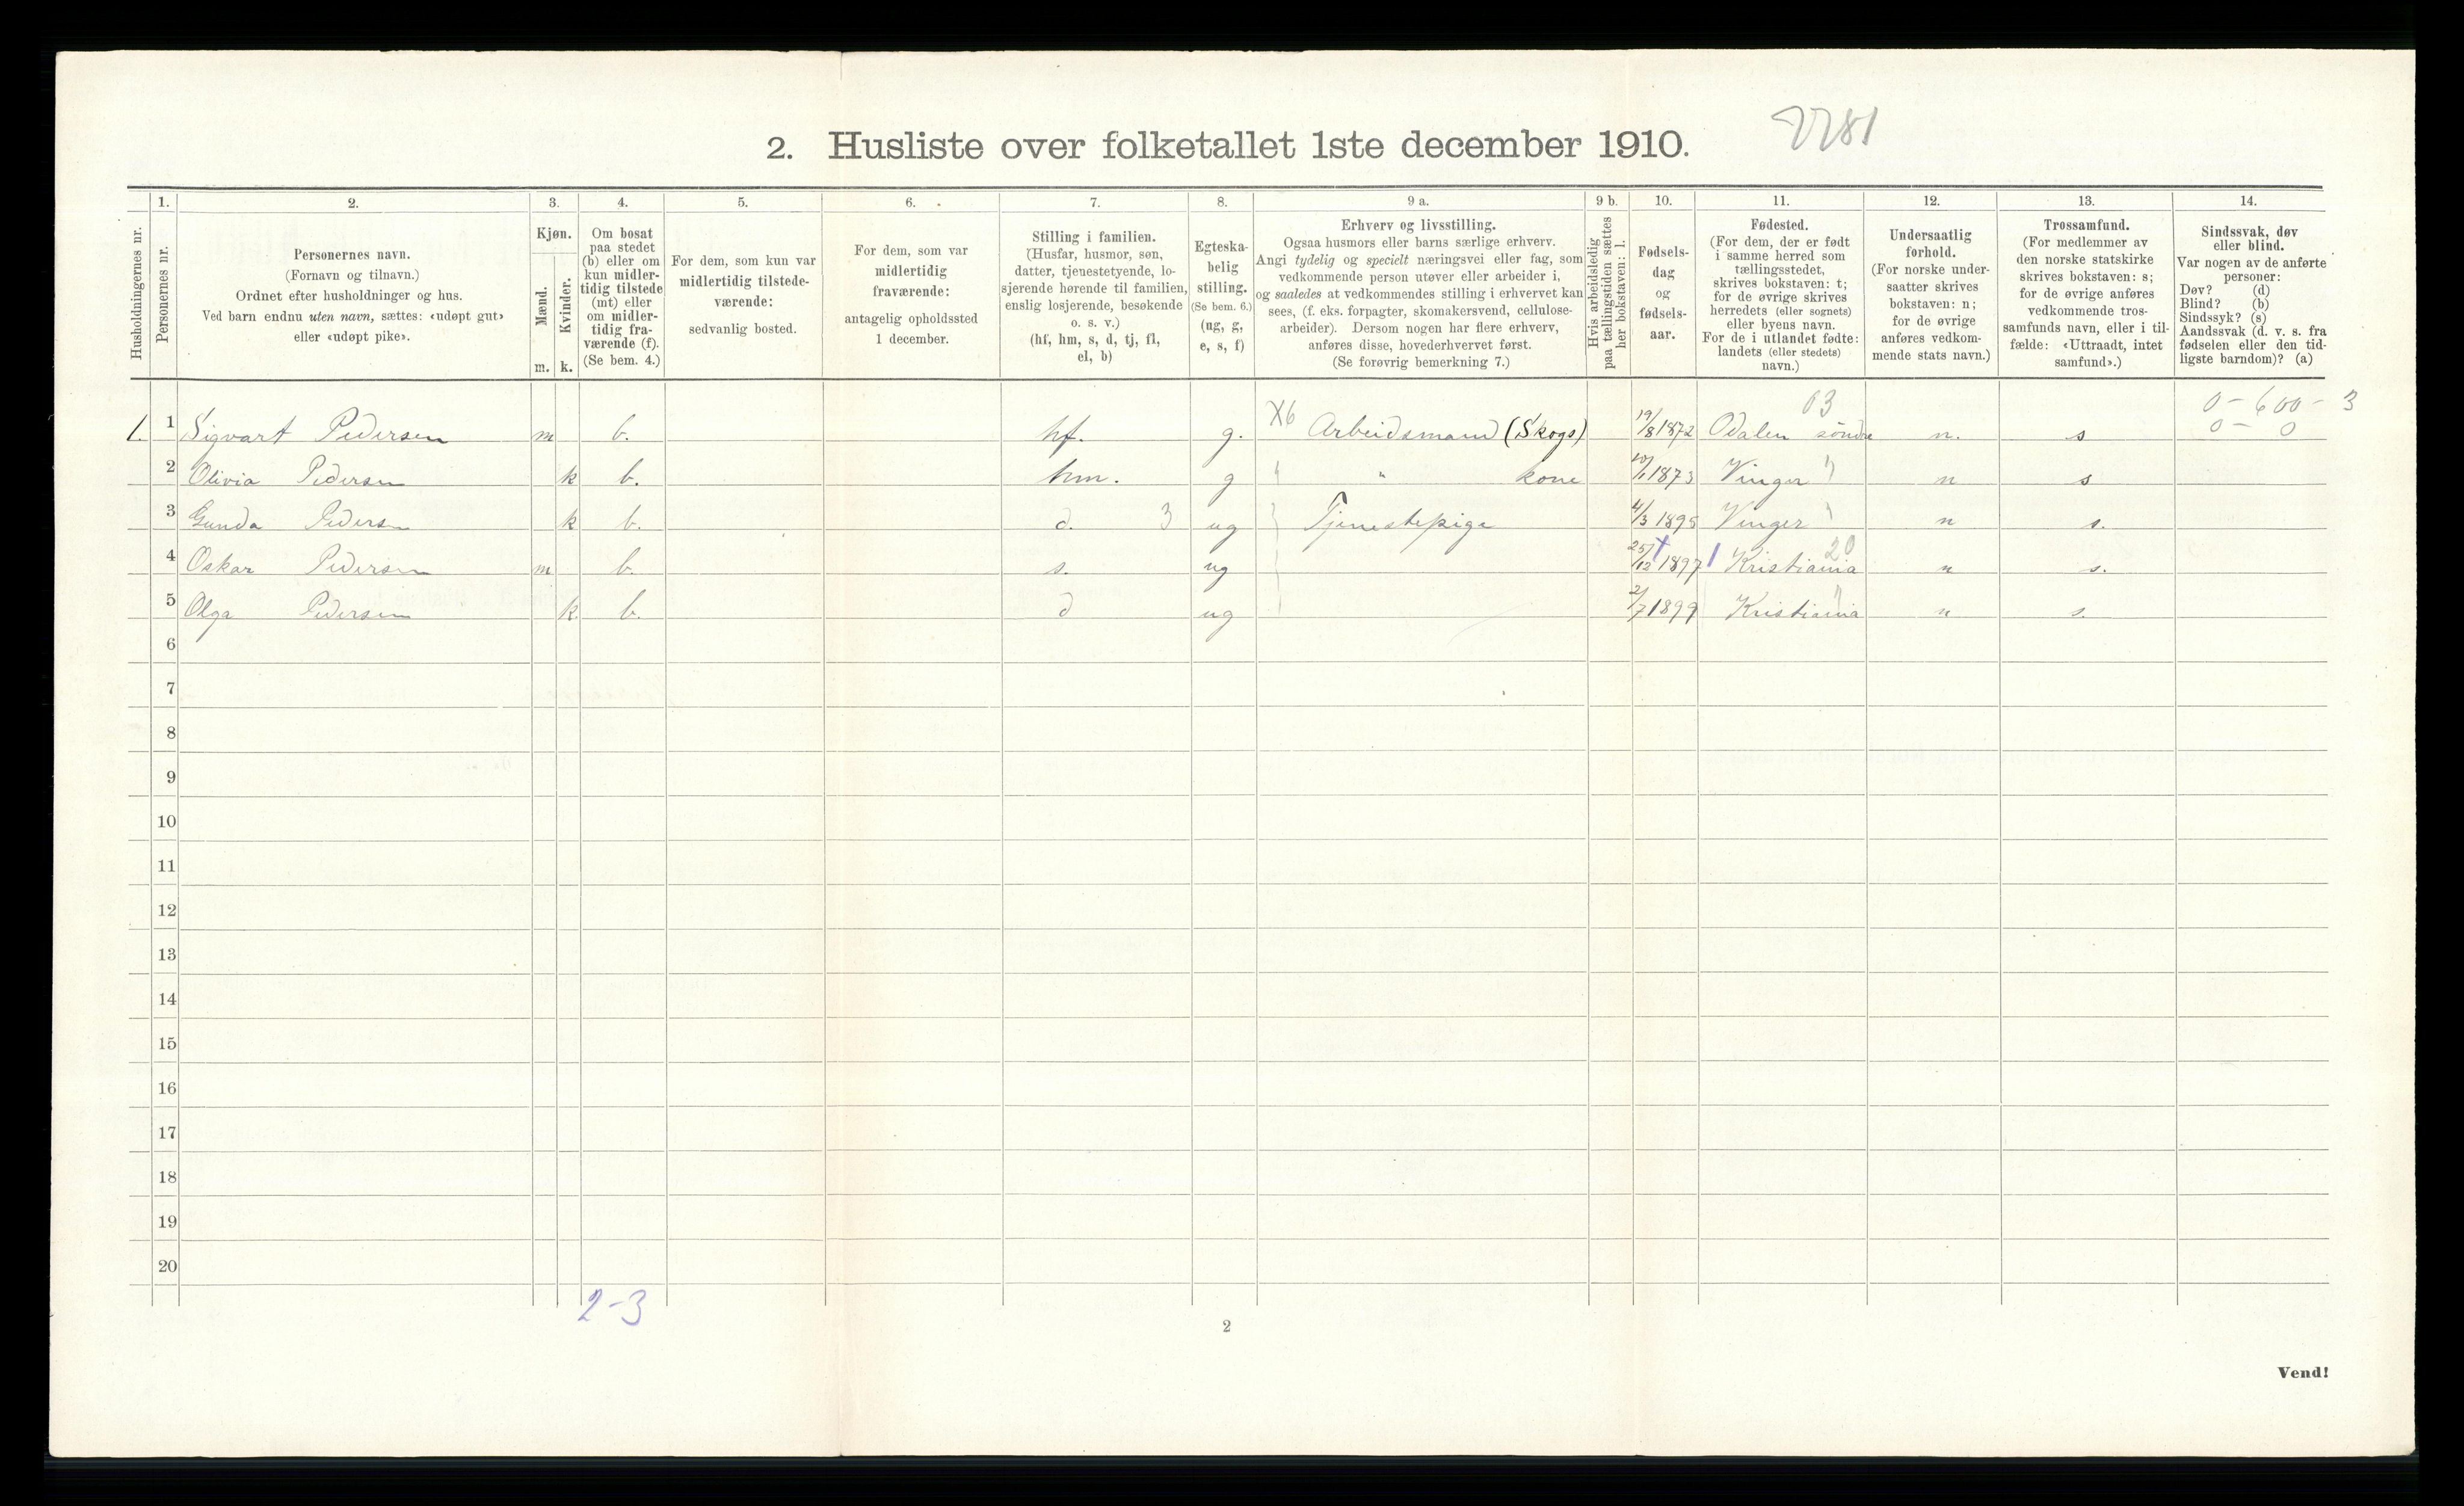 2781
2. Husliste over folketallet 1ste december 1910.
1. 2. 3. 4. 5. 6. 7. 8. 9 a. 9 b. 10. 11. 12. 13. 14.
Husholdningernes nr.
Personernes nr.
Personernes navn.
(Fornavn og tilnavn.)
Ordnet efter husholdninger og hus.
Ved barn endnu uten navn, sættes: «udøpt gut»
eller «udøpt pike».
Kjøn.
Mænd.
Kvinder.
m. k.
Om bosat
paa stedet
(b) eller om
kun midler-
tidig tilstede
(mt) eller
om midler-
tidig fra-
værende (f).
(Se bem. 4.)
For dem, som kun var
midlertidig tilstede-
værende:
sedvanlig bosted.
For dem, som var
midlertidig
fraværende:
antagelig opholdssted
1 december.
Stilling i familien.
(Husfar, husmor, søn,
datter, tjenestetyende, lo-
sjerende hørende til familien,
enslig losjerende, besøkende
o. s. v.)
(hf, hm, s, d, tj, fl,
el, b)
Egteska-
belig
stilling.
(Se bem. 6.)
(ug, g,
e, s, f)
Erhverv og livsstilling.
Ogsaa husmors eller barns særlige erhverv.
Angi tydelig og specielt næringsvei eller fag, som
vedkommende person utøver eller arbeider i,
og saaledes at vedkommendes stilling i erhvervet kan
sees, (f. eks. forpagter, skomakersvend, cellulose-
arbeider). Dersom nogen har flere erhverv,
anføres disse, hovederhvervet først.
(Se forøvrig bemerkning 7.)
Hvis arbeidsledig
paa tællingstiden sættes
her bokstaven: l.
Fødsels-
dag
og
fødsels-
aar.
Fødested.
(For dem, der er født
i samme herred som
tællingsstedet,
skrives bokstaven: t;
for de øvrige skrives
herredets (eller sognets)
eller byens navn.
For de i utlandet fødte:
landets (eller stedets)
navn.)
Undersaatlig
forhold.
(For norske under-
saatter skrives
bokstaven: n;
for de øvrige
anføres vedkom-
mende stats navn.)
Trossamfund.
(For medlemmer av
den norske statskirke
skrives bokstaven: s;
for de øvrige anføres
vedkommende tros-
samfunds navn, eller i til-
fælde: «Uttraadt, intet
samfund».)
Sindssvak, døv
eller blind.
Var nogen av de anførte
personer:
Døv? (d)
Blind? (b)
Sindssyk? (s)
Aandssvak (d. v. s. fra
fødselen eller den tid-
ligste barndom)? (a)
63 0 - 600 - 3
1. 1 Sigvart Pedersen m b. hf. g. X6 Arbeidsmand (Skogs) 19/8 1872 Odalen söndre n. s 0 - 0
2 Olivia Pedersen k b. hm. g " kone 1873 Vinger " n s
3 Gunda Peders k b. d. 3 ug Tjenestepige 4/3 1895 Vinger " n s.
20
4 Oskar Pedersen m b. s. ug 25/12 1897 Kristiania n s.
5 Olga Pedersen k. b. d ug 2/7 1899 Kristiania " n s.
6
7
8
9
10
11
12
13
14
15
16
17
18
19
20
2-3
2
Vend!